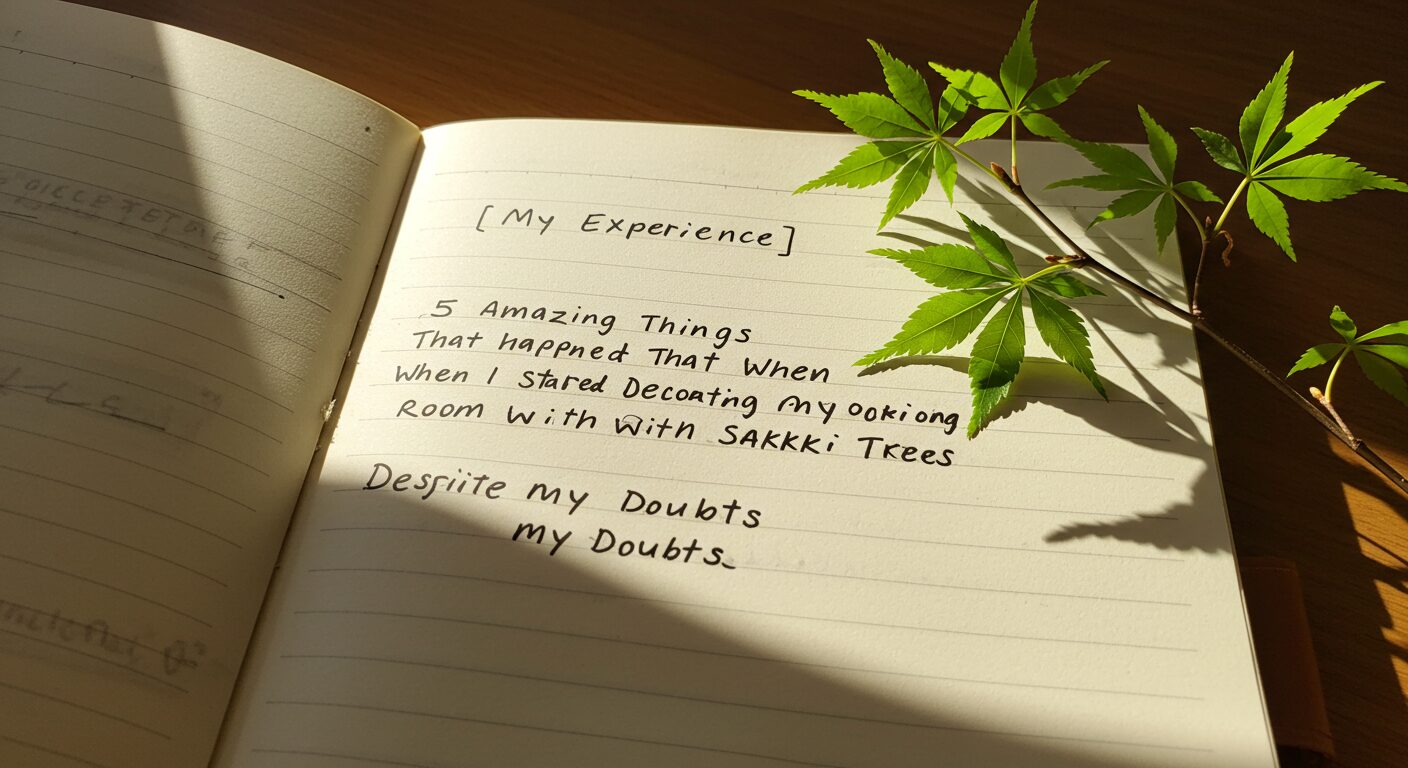 [My Experience]
5 Amazing Things
That Happned That When
When I Stared Decoating My ookiong
Room With With SAKKKi Trees
Desriite my Doubts
my Doubts